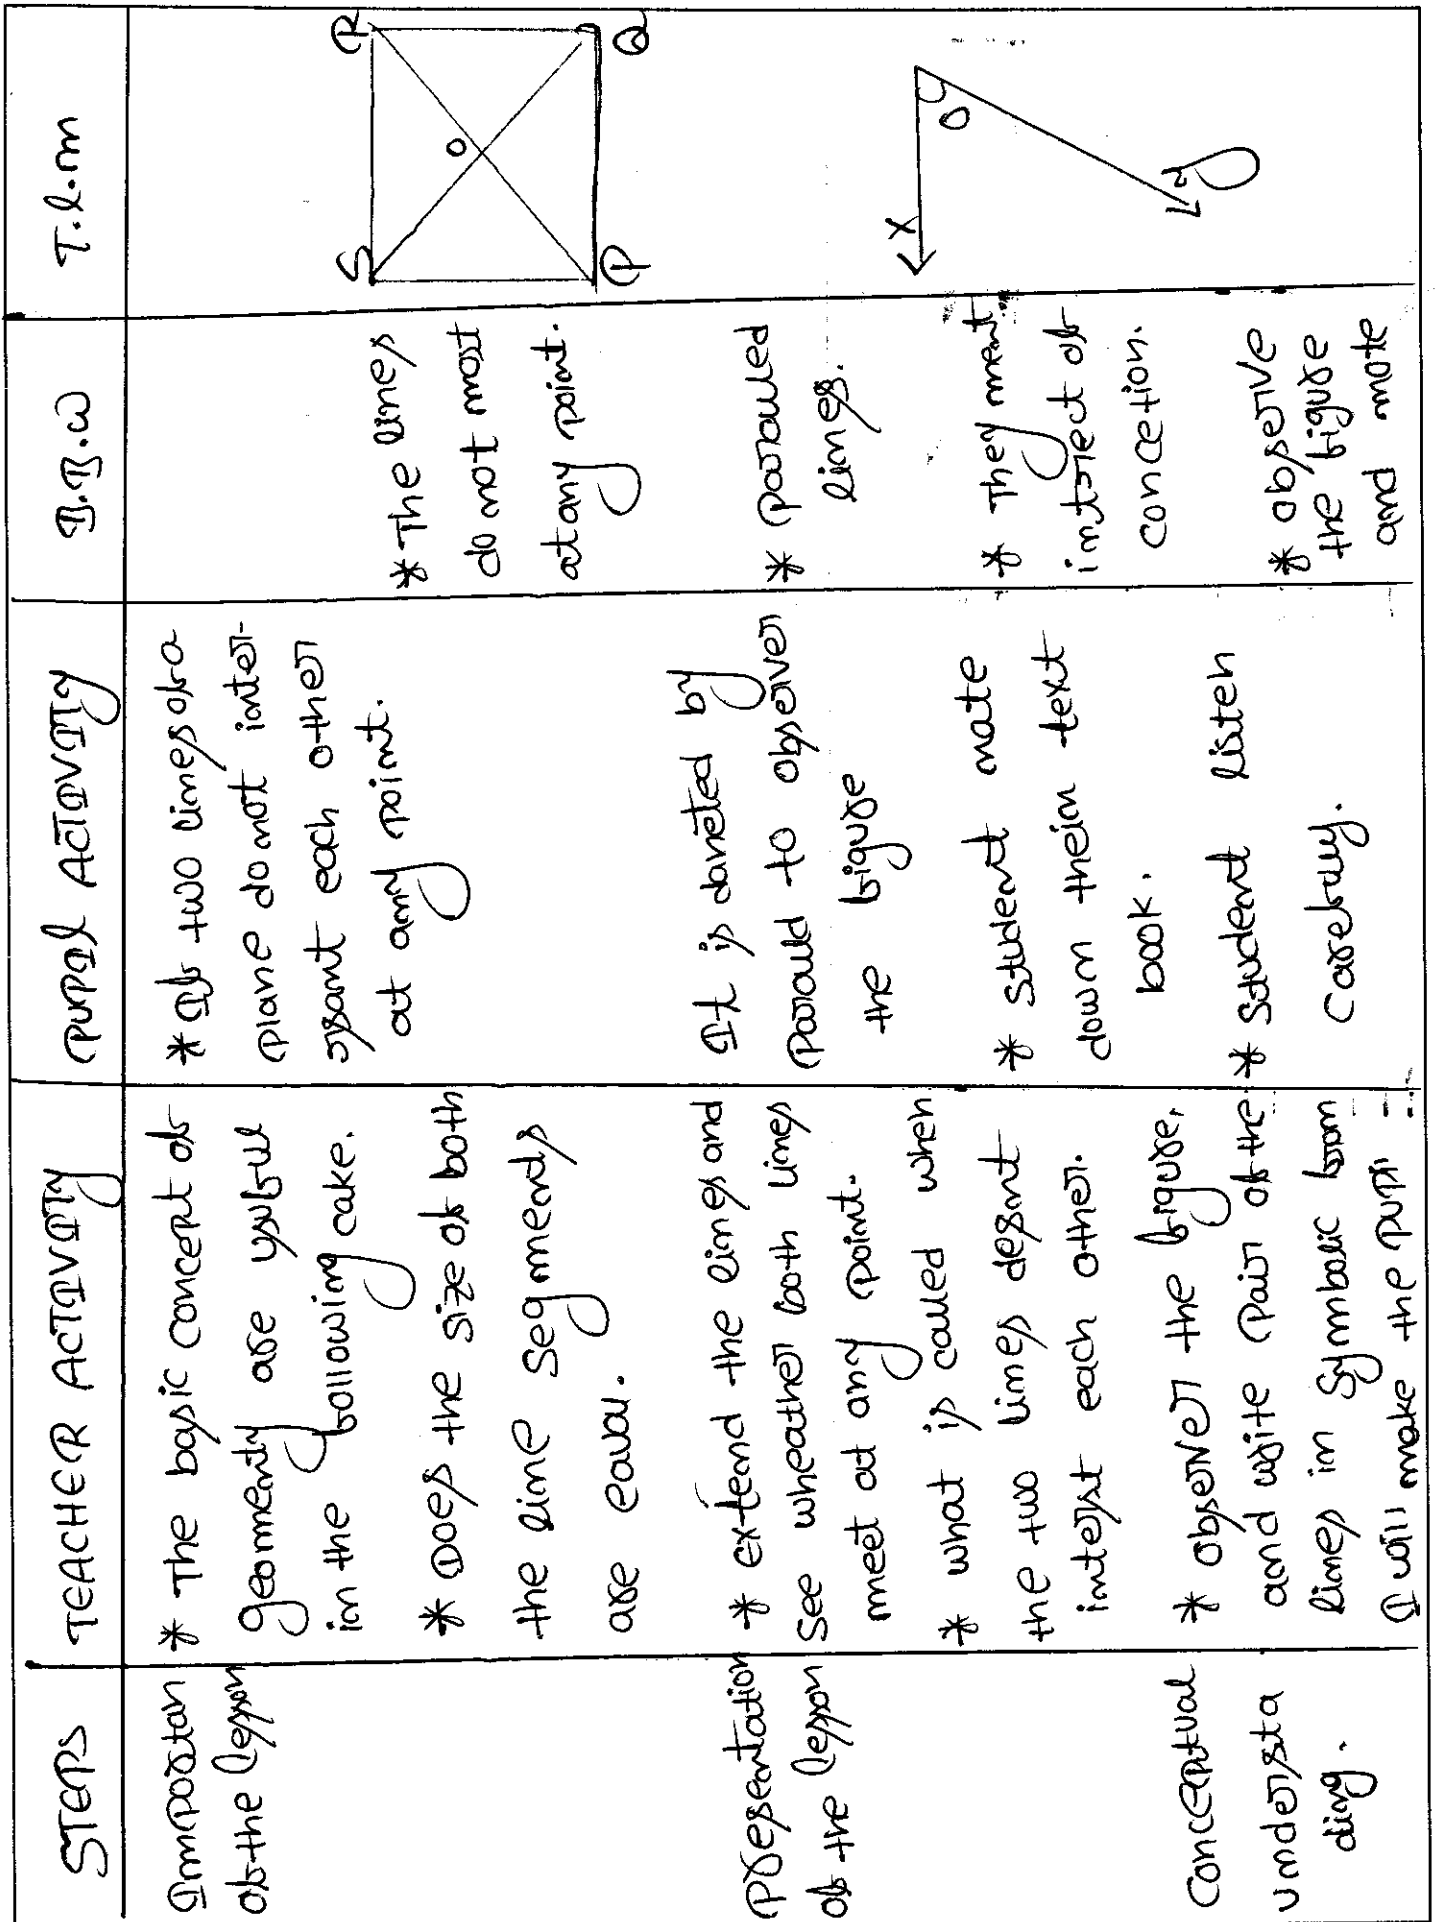 STEPS
TEACHER ACTIVITY
PUPIL ACTIVITY
B.B.W
T.l.m
Impostan
of the lesson
* The basic concept of
geomenty are usful
in the following cake.
* Does the size of both
the line segments
are eaual.
* If two lines of a
plane do not inter-
at any point.
each other
* The lines
do not mast
at any point.
S
R
O
P
Q
Presentation
of the lesson
* extend the lines and
See wheather both lines
meet at any point.
* what is called when
the two lines
each other.
It is daneted by
to observer
the figure
* Student nate
down their text
book.
lines.
* They
of
concetion.
X
O
y
Conceptual
understa
ding.
* observer the figure,
and write pair of the
lines in Symbolic from
I will make the pupil
* Student listen
Carefully.
* observe
the figure
and note